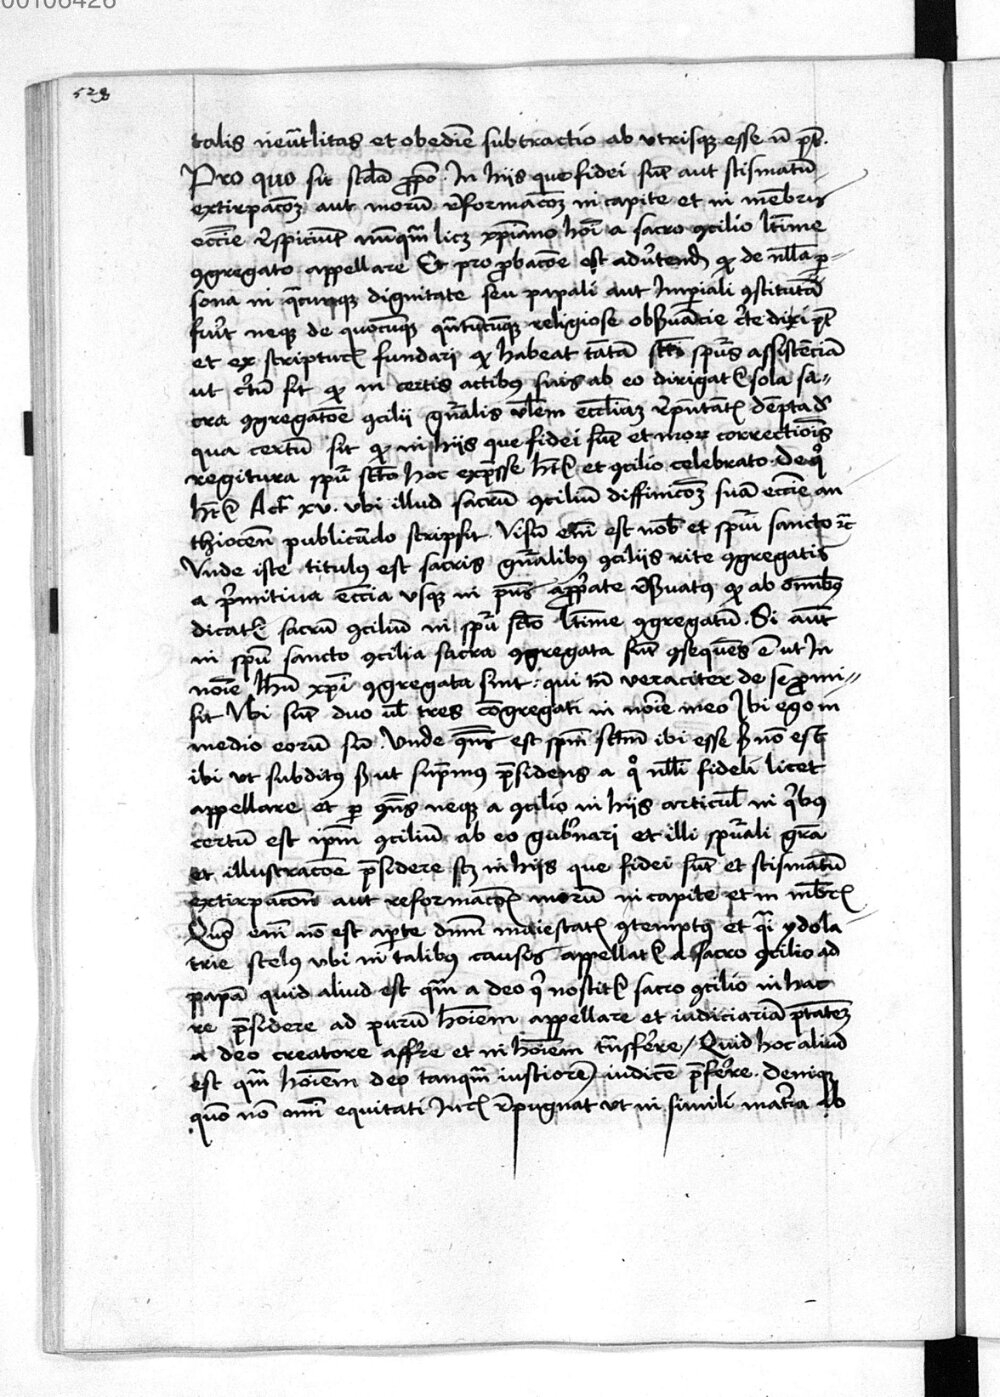 00106426
528
talis neūtlitas et obediē subtractio ab vtrisqꝫ esse nō pōt.
Pro quo sit scd̄a ꝓpō. In hijs que fidei sūt aut scismatū
extirpacōꝫ aut morū reformacōꝫ in capite et in mēbris
eccīe respiciūt nūqm̄ licꝫ xpīano hoī a sacro ꝯcilio ltīme
ꝯgregato appellare Et pro ꝓbacōe est adūtendū ꝙ de nlla ꝑ-
sona in qͣcunqꝫ dignitate seu papali aut Imꝑiali ꝯstituta
fuīt neqꝫ de quocunqꝫ qn̄tūcunqꝫ religiose obẞuācie c̄te dixi pōt
et ex scripturis fundari ꝙ habeat tātā scti spūs assistēciā
ut c̄tū sit ꝙ in certis actibus suis ab eo dirigatᷣ sola sa-
cra ꝯgregatōe ꝯcilii gn̄alis vlēm eccliaꝫ rep̄ntātis dēpta de
qua certū sit ꝙ in hijs que fidei sūt et moꝝ correctiōis
regitura spū scto hoc exp̄sse htᷣ et ꝯcilio celebrato de qͦ
htᷣ Act xv. vbi illud sacrū ꝯciliū diffinicōꝫ suā eccīe an
thiocen̄ publicādo scripsit. Visū em̄ est nob̄ et spūi sancto ꝛc̄
Vnde iste titulus est sacris gn̄alibus ꝯciliis rite ꝯgregatis
a pͥmitiua eccīa vsqꝫ in pn̄s apꝓpate reẞuatus ꝙ ab omībus
dicatᷣ sacrū ꝯciliū in spū scto ltīme ꝯgregatū. Si aūt
in spū sancto ꝯcilia sacra ꝯgregata sūt ꝯsequēs ē ut In
noīe Ihū xpī ꝯgregata sint: qui tn̄ veraciter de se ꝓmi-
sit Vbi sūt duo ul tres congregati in noīe meo Ibi ego in
medio eorū sū. Vnde qn̄s est spm̄ sctm̄ ibi esse ẞ nō est
ibi vt subditus ẞ ut sup̄mus p̄sidens a qͦ nlli fideli licet
appellare et ꝑ ꝯn̄s neqꝫ a ꝯcilio in hijs articul in qͥbus
certū est ipm̄ ꝯciliū ab eo gub̄nari et illi spūali grā
et illustracōe p̄sidere scꝫ in hijs que fidei sūt et scismatū
extirpacōem aut reformacōis morū in capite et in mēbris
Quō em̄ nō est aꝑte diuīn maiestatis ꝯtemptus et qͣi ydola
trie scelus vbi in talibus causis appellatᷣ a sacro ꝯcilio ad
papā quid aliud est qm̄ a deo qͥ nostitᷣ sacro ꝯcilio in hac
re p̄sidere ad purū hoīem appellare et iudiciariā ptātem
a deo creatore aff̄re et in hoīem trn̄sferre / Quid hoc aliud
est qm̄ hoīem deo tanqm̄ iustiorē iudicē p̄ferre. deniqꝫ
quō nō omī equitati Iuris repugnat vt in simili mat̄ia ab